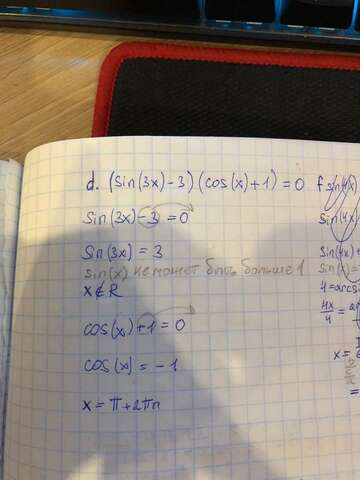 d. (sin(3x)-3)(cos(x)+1)=0
sin(3x)-3=0
sin(3x)=3
sin(x) не может быть больше 1
x∉R
cos(x)+1=0
cos(x)=-1
x=π+2πn
f sin(4x)
sin(4x)
sin(4x)+
sin(x)=
4=arcs
4x/4 =
x=
=